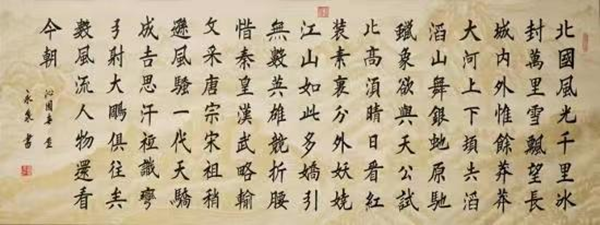 北國風光千里冰
封萬里雪飄望長
城内外惟餘莽莽
大河上下頓失滔
滔山舞銀蛇原馳
蠟象欲與天公試
比高須晴日看紅
裝素裹分外妖嬈
江山如此多嬌引
無數英雄競折腰
惜秦皇漢武略輸
文采唐宗宋祖稍
遜風騷一代天驕
成吉思汗衹識彎
弓射大鵰俱往矣
數風流人物還看
今朝
沁園春雪
永泉書